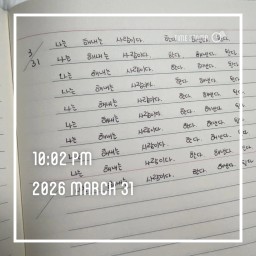 3/31
나는 해내는 사람이다. 한다. 해낸다. 된다.
나는 해내는 사람이다. 한다. 해낸다. 된다.
나는 해내는 사람이다. 한다. 해낸다. 된다.
나는 해내는 사람이다. 한다. 해낸다. 된다.
나는 해내는 사람이다. 한다. 해낸다. 된다.
나는 해내는 사람이다. 한다. 해낸다. 된다.
나는 해내는 사람이다. 한다. 해낸다. 된다.
나는 해내는 사람이다. 한다. 해낸다. 된다.
나는 해내는 사람이다. 한다. 해낸다. 된다.
10:02 PM
2026 MARCH 31